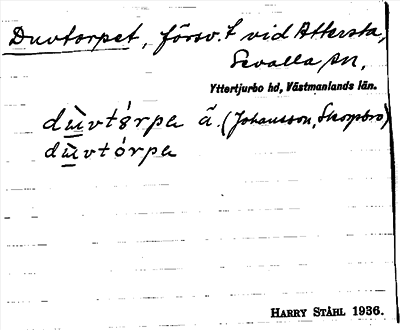 Duvtorpet, försv. t vid Åttersta,
Sevalla sn,
Yttertjurbo hd, Västmanlands län.
dùvtórpa ä. (Johansson, Skorpbro)
dùvtórpa
HARRY STÅHL 1936.